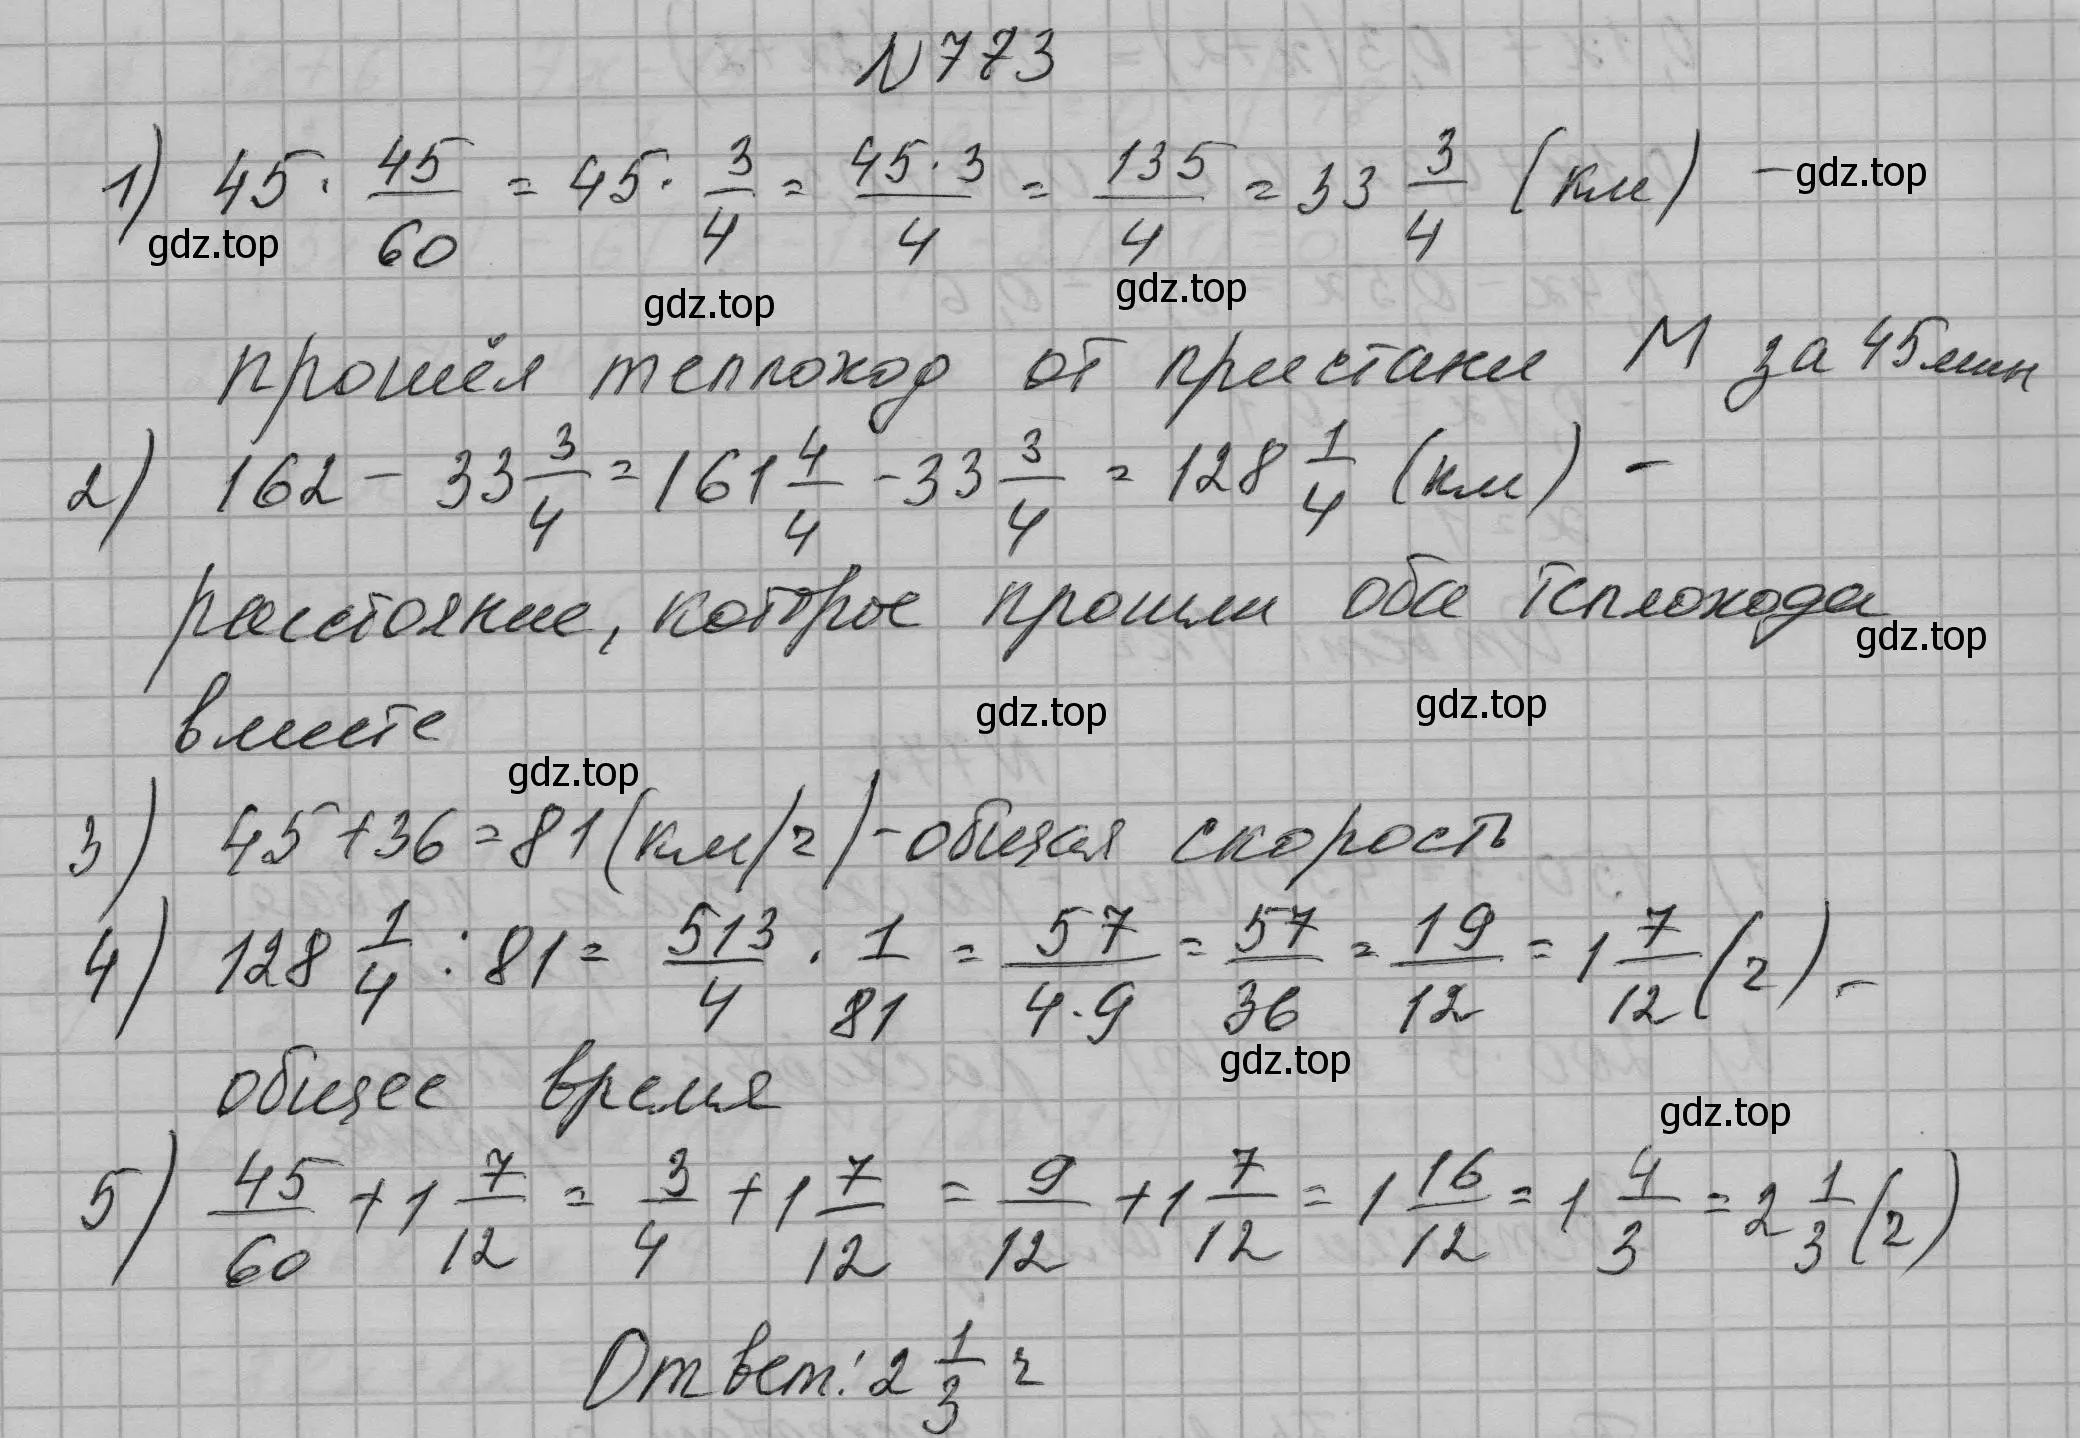 N 773
1) 45 · 45/60 = 45 · 3/4 = 45·3/4 = 135/4 = 33 3/4 (км) – gdz.top
gdz.top
gdz.top gdz.top
прошёл теплоход от пристани М за 45 мин
2) 162 – 33 3/4 = 161 4/4 – 33 3/4 = 128 1/4 (км) –
расстояние, которое прошли оба теплохода
gdz.top
вместе gdz.top gdz.top
gdz.top
3) 45 + 36 = 81 (км/ч) – общая скорость
4) 128 1/4 : 81 = 513/4 · 1/81 = 57/4·9 = 57/36 = 19/12 = 1 7/12 (ч) –
gdz.top
общее время
gdz.top
5) 45/60 + 1 7/12 = 3/4 + 1 7/12 = 9/12 + 1 7/12 = 1 16/12 = 1 4/3 = 2 1/3 (ч)
Ответ: 2 1/3 ч